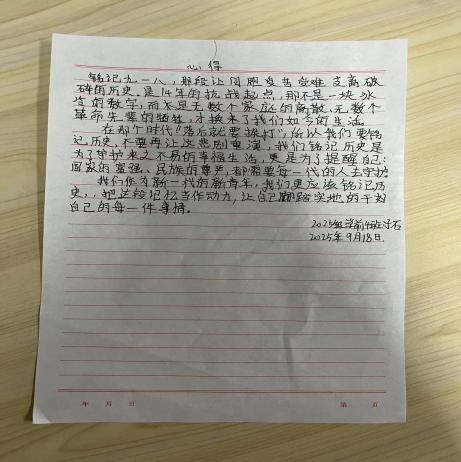 心得
铭记九一八，那段让同胞受苦受难支离破
碎的历史，是14年的抗战起点，那不是一块冰
冷的数字，而是无数个家庭的离散、无数个
革命先辈的牺牲，才换来了我们如今的生活。
在那个时代“落后就要挨打”，所以我们要铭
记历史，不要再让这悲剧重演，我们铭记历史是
为了守护来之不易的幸福生活，更是为了提醒自己：
国家的富强、民族的尊严，都需要每一代的人去守护
我们作为新一代的新青年，我们更应该铭记历
史，把这段记忆当作动力，让自己脚踏实地的干好
自己的每一件事情。
2025级学前4班
2025年9月18日
年 月 日 第 页